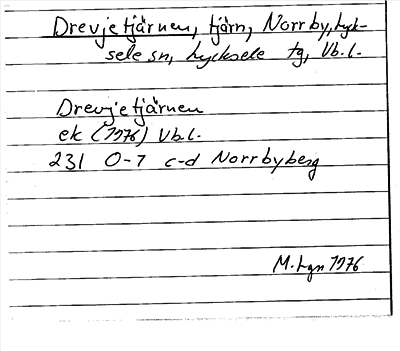 Drevjetjärnen, tjärn, Norrby, Lyck-
sele sn, Lycksele tg, Vb.l.
Drevjetjärnen
ek (1976) Vb.l.
231 0-7 c-d Norrbyberg
M. Lgn 1976